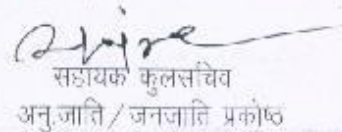 सहायक कुलसचिव
अनु.जाति / जनजाति प्रकोष्ठ